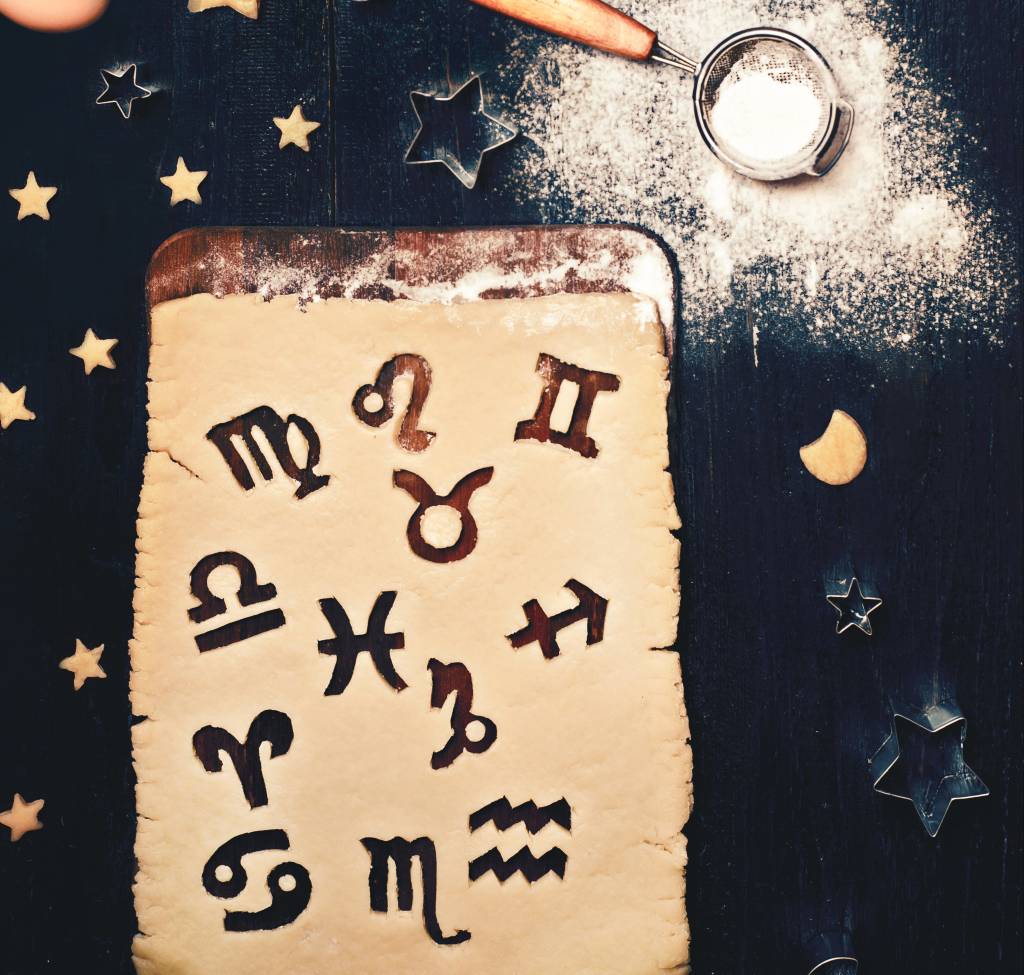 ♍ ♌ ♊
♉
♎ ♓ ♐
♑
♈
♒
♋ ♏